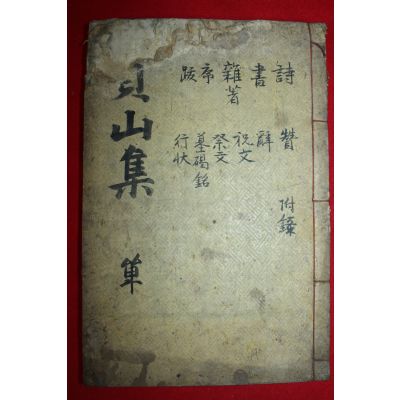 詩
書
雜著
序
跋
贊
辭
祝文
祭文
墓碣銘
行狀
附錄
山集
單